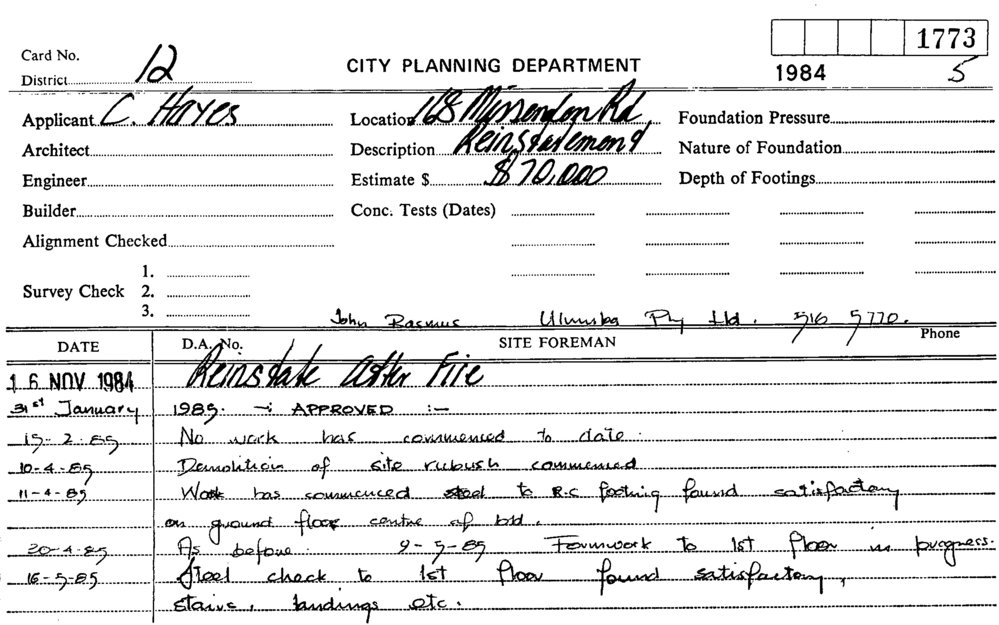 1773
Card No. 12
CITY PLANNING DEPARTMENT
1984 5
District
Applicant C. Hayes Location 168 Missendon Rd Foundation Pressure
Architect Description Reinstatement Nature of Foundation
Engineer Estimate $ $70,000 Depth of Footings
Builder Conc. Tests (Dates)
Alignment Checked
1.
Survey Check 2.
3.
John Rasmus Pty Ltd. 516 5770.
DATE D.A. No. SITE FOREMAN Phone
16 NOV 1984 Reinstate after Fire
31st January 1985. -: APPROVED :-
15-2-85 No work has commenced to date.
10-4-85 Demolition of site rubush commenced
11-4-85 Work has commenced steel to R.C footing found satisfactory
on ground floor centre of bld.
20-4-85 As before. 9-5-85 Formwork to 1st floor in progress.
16-5-85 Steel check to 1st floor found satisfactory,
stairs, landings etc.